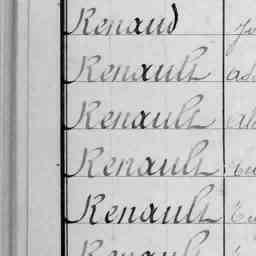 Renaud
Renault
Renault
Renault
Renault
Renault